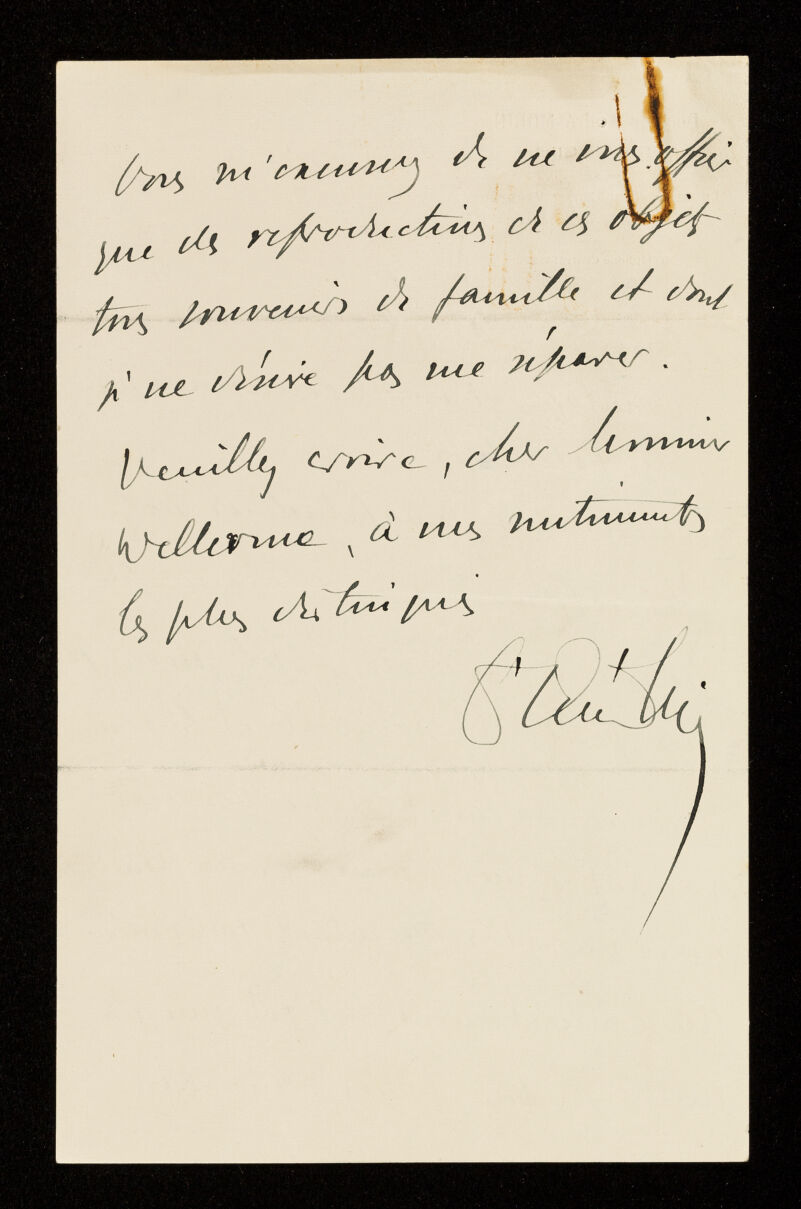 Vous m'excuserez de ne vous offrir
que des reproductions de ces objets
tous souvenirs de famille et dont
je ne désire pas me séparer.
Veuillez croire, cher Monsieur
Wellcome, à mes sentiments
les plus distingués